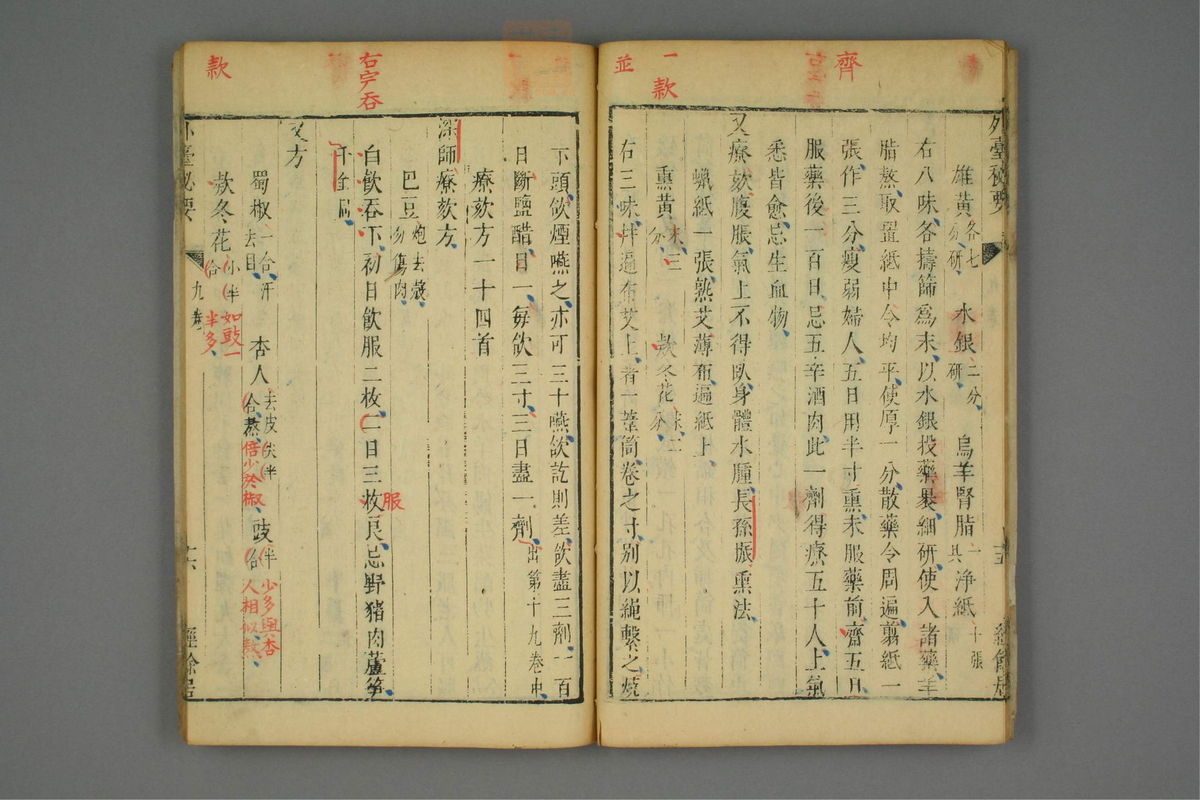 齊
一款
並
外臺秘要
雄黃各七分研 水銀二分研 烏羊腎脂一具 淨紙十張
右八味各擣篩為末以水銀投藥裹細研使入諸藥羊
脂熬取置紙中令均平使厚一分散藥令周遍剪紙一
張作三分瘦弱婦人五日用半寸熏未服藥前齋五日
服藥後一百日忌五辛酒肉此一劑得療五十人上氣
悉皆愈忌生血物
又療欬腹脹氣上不得臥身體水腫長孫振熏法
蠟紙一張熟艾薄布遍紙上
熏黃末三分 款冬花末二分
右三味拌遍布艾上者一葦筒卷之寸別以繩繫之燒
十五
經餘居
右字吞
款
下頭飲煙嚥之亦可三十嚥飲訖則差飲盡三劑一百
日斷鹽醋日一每飲三寸三日盡一劑出第十九卷中
療欬方一十四首
深師療欬方
巴豆炮去殼勿傷肉
白飲吞下初日飲服二枚二日三枚良忌野豬肉蘆笋
服
千金
又方
蜀椒一合汗去目 杏人去皮尖半合熬 豉半合
倍少於椒
少多與杏人相似熬
款冬花小半合
如豉一半多
外臺秘要
九卷
十六
經餘居